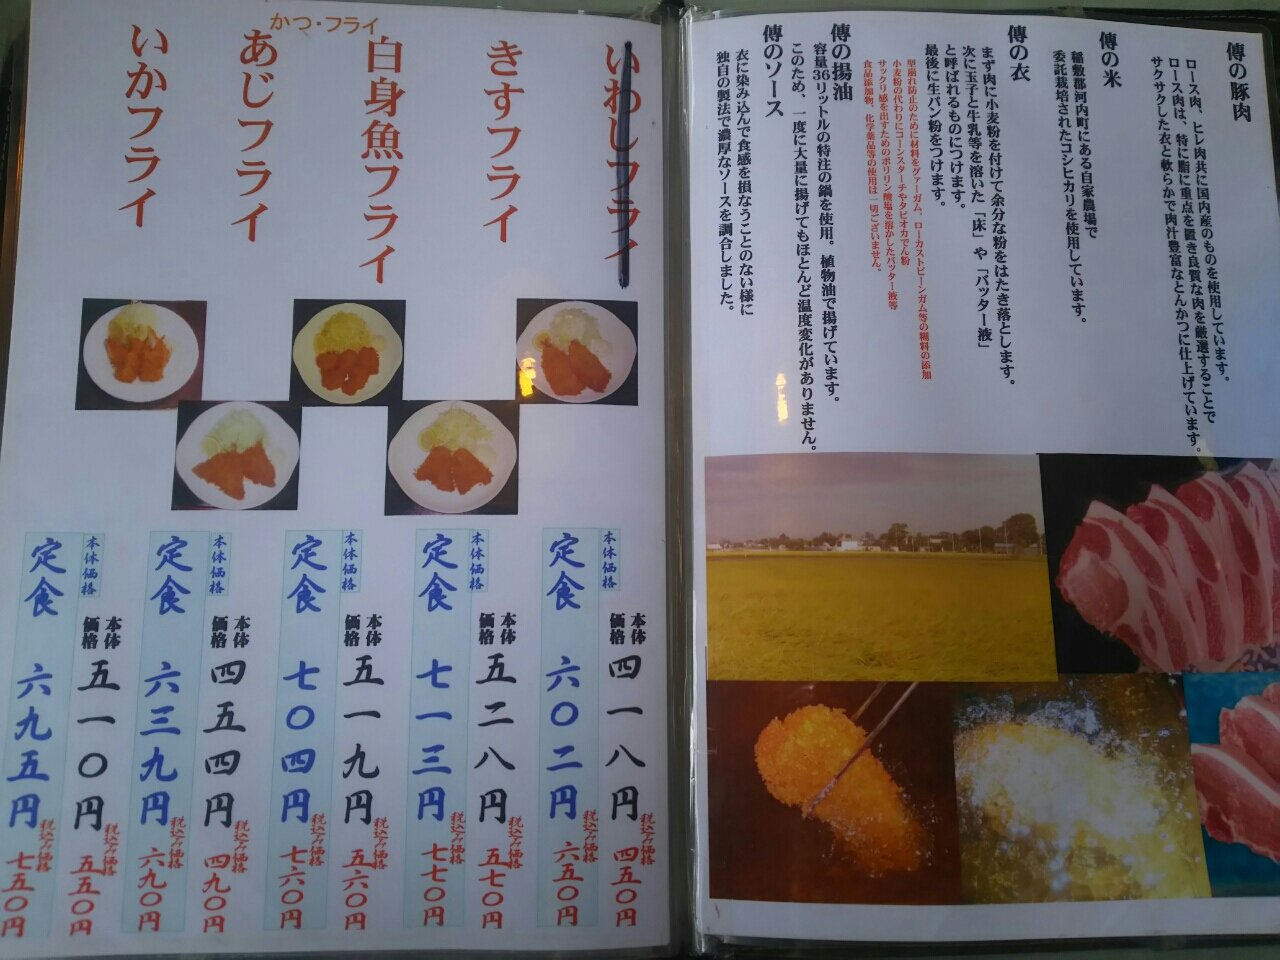 傳の豚肉
ロース肉、ヒレ肉共に国内産のものを使用しています。
ロース肉は、特に脂に重点を置き良質な肉を厳選することで
サクサクした衣と軟らかで肉汁豊富なとんかつに仕上げています。
傳の米
稲敷郡河内町にある自家農場で
委託栽培されたコシヒカリを使用しています。
傳の衣
まず肉に小麦粉を付けて余分な粉をはたき落とします。
次に玉子と牛乳等を溶いた「床」や「バッター液」
と呼ばれるものにつけます。
最後に生パン粉をつけます。
型崩れ防止のために材料をグァーガム、ローカストビーンガム等の糊料の添加
小麦粉の代わりにコーンスターチやタピオカでん粉
サックリ感を出すためのポリリン酸塩を溶かしたバッター液等
食品添加物、化学薬品等の使用は一切ございません。
傳の揚油
容量36リットルの特注の鍋を使用。植物油で揚げています。
このため、一度に大量に揚げてもほとんど温度変化がありません。
傳のソース
衣に染み込んで食感を損なうことのない様に
独自の製法で濃厚なソースを調合しました。
かつ・フライ
いわしフライ
きすフライ
白身魚フライ
あじフライ
いかフライ
本体価格 四一八円 税込み価格 四五〇円
定食 本体価格 六〇二円 税込み価格 六五〇円
本体価格 五二八円 税込み価格 五七〇円
定食 本体価格 七一三円 税込み価格 七七〇円
本体価格 五一九円 税込み価格 五六〇円
定食 本体価格 七〇四円 税込み価格 七六〇円
本体価格 四五四円 税込み価格 四九〇円
定食 本体価格 六三九円 税込み価格 六九〇円
本体価格 五一〇円 税込み価格 五五〇円
定食 本体価格 六九五円 税込み価格 七五〇円